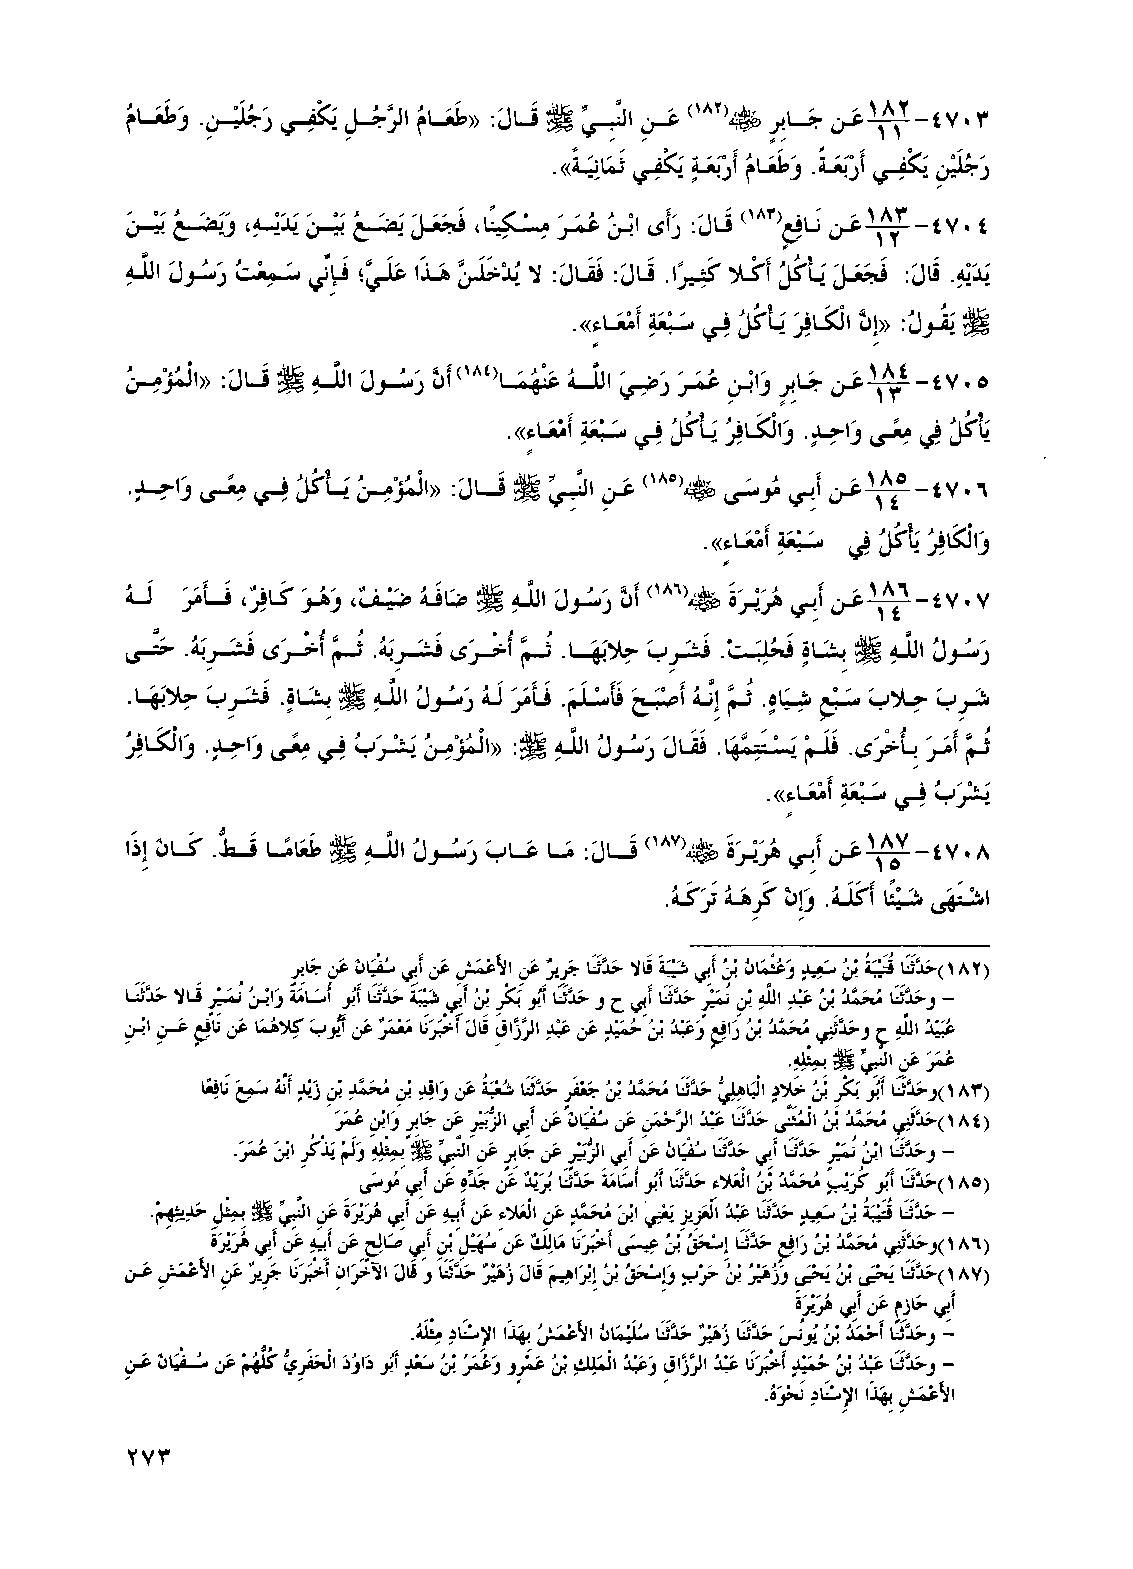 ٤٧٠٣- ١٨٢/١١ عَن جَابِرٍ ﵁(١٨٢) عَنِ النَّبِيِّ ﷺ قَالَ: «طَعَامُ الرَّجُلِ يَكْفِي رَجُلَيْنِ. وَطَعَامُ
رَجُلَيْنِ يَكْفِي أَرْبَعَةً. وَطَعَامُ أَرْبَعَةٍ يَكْفِي ثَمَانِيَةً».
٤٧٠٤- ١٨٣/١٢ عَن نَافِعٍ(١٨٣) قَالَ: رَأَى ابْنُ عُمَرَ مِسْكِينًا، فَجَعَلَ يَضَعُ بَيْنَ يَدَيْهِ، وَيَضَعُ بَيْنَ
يَدَيْهِ. قَالَ: فَجَعَلَ يَأْكُلُ أَكْلا كَثِيرًا. قَالَ: فَقَالَ: لا يُدْخَلَنَّ هَذَا عَلَيَّ؛ فَإِنِّي سَمِعْتُ رَسُولَ اللَّهِ
ﷺ يَقُولُ: «إِنَّ الْكَافِرَ يَأْكُلُ فِي سَبْعَةِ أَمْعَاءٍ».
٤٧٠٥- ١٨٤/١٣ عَن جَابِرٍ وَابْنِ عُمَرَ رَضِيَ اللَّهُ عَنْهُمَا(١٨٤) أَنَّ رَسُولَ اللَّهِ ﷺ قَالَ: «الْمُؤْمِنُ
يَأْكُلُ فِي مِعًى وَاحِدٍ. وَالْكَافِرُ يَأْكُلُ فِي سَبْعَةِ أَمْعَاءٍ».
٤٧٠٦- ١٨٥/١٤ عَن أَبِي مُوسَى ﵁(١٨٥) عَنِ النَّبِيِّ ﷺ قَالَ: «الْمُؤْمِنُ يَأْكُلُ فِي مِعًى وَاحِدٍ.
وَالْكَافِرُ يَأْكُلُ فِي سَبْعَةِ أَمْعَاءٍ».
٤٧٠٧- ١٨٦/١٤ عَن أَبِي هُرَيْرَةَ ﵁(١٨٦) أَنَّ رَسُولَ اللَّهِ ﷺ ضَافَهُ ضَيْفٌ، وَهُوَ كَافِرٌ، فَأَمَرَ لَهُ
رَسُولُ اللَّهِ ﷺ بِشَاةٍ فَحُلِبَتْ. فَشَرِبَ حِلابَهَا. ثُمَّ أُخْرَى فَشَرِبَهُ. ثُمَّ أُخْرَى فَشَرِبَهُ. حَتَّى
شَرِبَ حِلابَ سَبْعِ شِيَاهٍ. ثُمَّ إِنَّهُ أَصْبَحَ فَأَسْلَمَ. فَأَمَرَ لَهُ رَسُولُ اللَّهِ ﷺ بِشَاةٍ. فَشَرِبَ حِلابَهَا.
ثُمَّ أَمَرَ بِأُخْرَى. فَلَمْ يَسْتَتِمَّهَا. فَقَالَ رَسُولُ اللَّهِ ﷺ: «الْمُؤْمِنُ يَشْرَبُ فِي مِعًى وَاحِدٍ. وَالْكَافِرُ
يَشْرَبُ فِي سَبْعَةِ أَمْعَاءٍ».
٤٧٠٨- ١٨٧/١٥ عَن أَبِي هُرَيْرَةَ ﵁(١٨٧) قَالَ: مَا عَابَ رَسُولُ اللَّهِ ﷺ طَعَامًا قَطُّ. كَانَ إِذَا
اشْتَهَى شَيْئًا أَكَلَهُ. وَإِنْ كَرِهَهُ تَرَكَهُ.
(١٨٢)حَدَّثَنَا قُتَيْبَةُ بْنُ سَعِيدٍ وَعُثْمَانُ بْنُ أَبِي شَيْبَةَ قَالا حَدَّثَنَا جَرِيرٌ عَنِ الأَعْمَشِ عَن أَبِي سُفْيَانَ عَن جَابِرٍ
- وحَدَّثَنَا مُحَمَّدُ بْنُ عَبْدِ اللَّهِ بْنِ نُمَيْرٍ حَدَّثَنَا أَبِي ح و حَدَّثَنَا أَبُو بَكْرِ بْنُ أَبِي شَيْبَةَ حَدَّثَنَا أَبُو أُسَامَةَ وَابْنُ نُمَيْرٍ قَالا حَدَّثَنَا
عُبَيْدُ اللَّهِ ح وحَدَّثَنِي مُحَمَّدُ بْنُ رَافِعٍ وَعَبْدُ بْنُ حُمَيْدٍ عَن عَبْدِ الرَّزَّاقِ قَالَ أَخْبَرَنَا مَعْمَرٌ عَن أَيُّوبَ كِلاهُمَا عَن نَافِعٍ عَنِ ابْنِ
عُمَرَ عَنِ النَّبِيِّ ﷺ بِمِثْلِهِ.
(١٨٣)وحَدَّثَنَا أَبُو بَكْرِ بْنُ خَلادٍ الْبَاهِلِيُّ حَدَّثَنَا مُحَمَّدُ بْنُ جَعْفَرٍ حَدَّثَنَا شُعْبَةُ عَن وَاقِدِ بْنِ مُحَمَّدِ بْنِ زَيْدٍ أَنَّهُ سَمِعَ نَافِعًا
(١٨٤)حَدَّثَنِي مُحَمَّدُ بْنُ الْمُثَنَّى حَدَّثَنَا عَبْدُ الرَّحْمَنِ عَن سُفْيَانَ عَن أَبِي الزُّبَيْرِ عَن جَابِرٍ وَابْنِ عُمَرَ
- وحَدَّثَنَا ابْنُ نُمَيْرٍ حَدَّثَنَا أَبِي حَدَّثَنَا سُفْيَانُ عَن أَبِي الزُّبَيْرِ عَن جَابِرٍ عَنِ النَّبِيِّ ﷺ بِمِثْلِهِ وَلَمْ يَذْكُرِ ابْنَ عُمَرَ.
(١٨٥)حَدَّثَنَا أَبُو كُرَيْبٍ مُحَمَّدُ بْنُ الْعَلاءِ حَدَّثَنَا أَبُو أُسَامَةَ حَدَّثَنَا بُرَيْدٌ عَن جَدِّهِ عَن أَبِي مُوسَى
- حَدَّثَنَا قُتَيْبَةُ بْنُ سَعِيدٍ حَدَّثَنَا عَبْدُ الْعَزِيزِ يَعْنِي ابْنَ مُحَمَّدٍ عَنِ الْعَلاءِ عَن أَبِيهِ عَن أَبِي هُرَيْرَةَ عَنِ النَّبِيِّ ﷺ بِمِثْلِ حَدِيثِهِمْ.
(١٨٦)وحَدَّثَنِي مُحَمَّدُ بْنُ رَافِعٍ حَدَّثَنَا إِسْحَقُ بْنُ عِيسَى أَخْبَرَنَا مَالِكٌ عَن سُهَيْلِ بْنِ أَبِي صَالِحٍ عَن أَبِيهِ عَن أَبِي هُرَيْرَةَ
(١٨٧)حَدَّثَنَا يَحْيَى بْنُ يَحْيَى وَزُهَيْرُ بْنُ حَرْبٍ وَإِسْحَقُ بْنُ إِبْرَاهِيمَ قَالَ زُهَيْرٌ حَدَّثَنَا و قَالَ الآخَرَانِ أَخْبَرَنَا جَرِيرٌ عَنِ الأَعْمَشِ عَن
أَبِي حَازِمٍ عَن أَبِي هُرَيْرَةَ
- وحَدَّثَنَا أَحْمَدُ بْنُ يُونُسَ حَدَّثَنَا زُهَيْرٌ حَدَّثَنَا سُلَيْمَانُ الأَعْمَشُ بِهَذَا الإِسْنَادِ مِثْلَهُ.
- وحَدَّثَنَا عَبْدُ بْنُ حُمَيْدٍ أَخْبَرَنَا عَبْدُ الرَّزَّاقِ وَعَبْدُ الْمَلِكِ بْنُ عَمْرٍو وَعُمَرُ بْنُ سَعْدٍ أَبُو دَاوُدَ الْحَفَرِيُّ كُلُّهُمْ عَن سُفْيَانَ عَنِ
الأَعْمَشِ بِهَذَا الإِسْنَادِ نَحْوَهُ.
٢٧٣